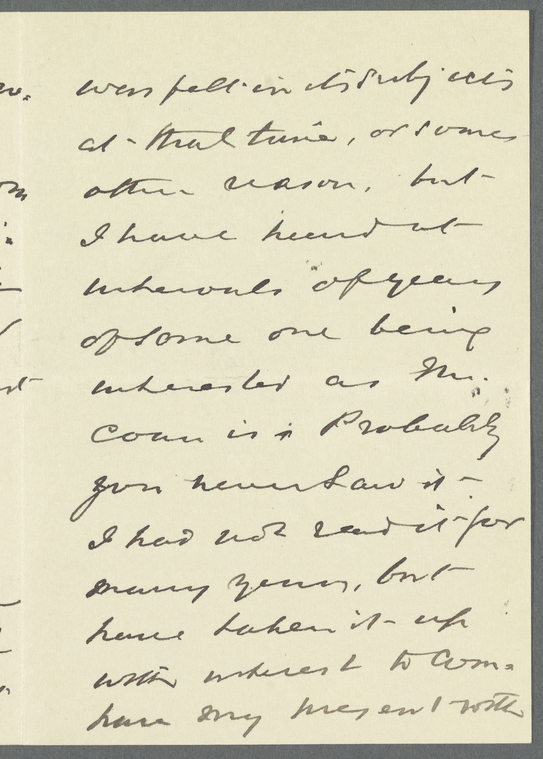 was felt in its subjects
at that time, or some
other reason, but
I have heard at
intervals of years
of some one being
interested as Mr.
Conn is; Probably
you never saw it
I had not read it for
many years, but
have taken it up
with interest to com-
pare my present with